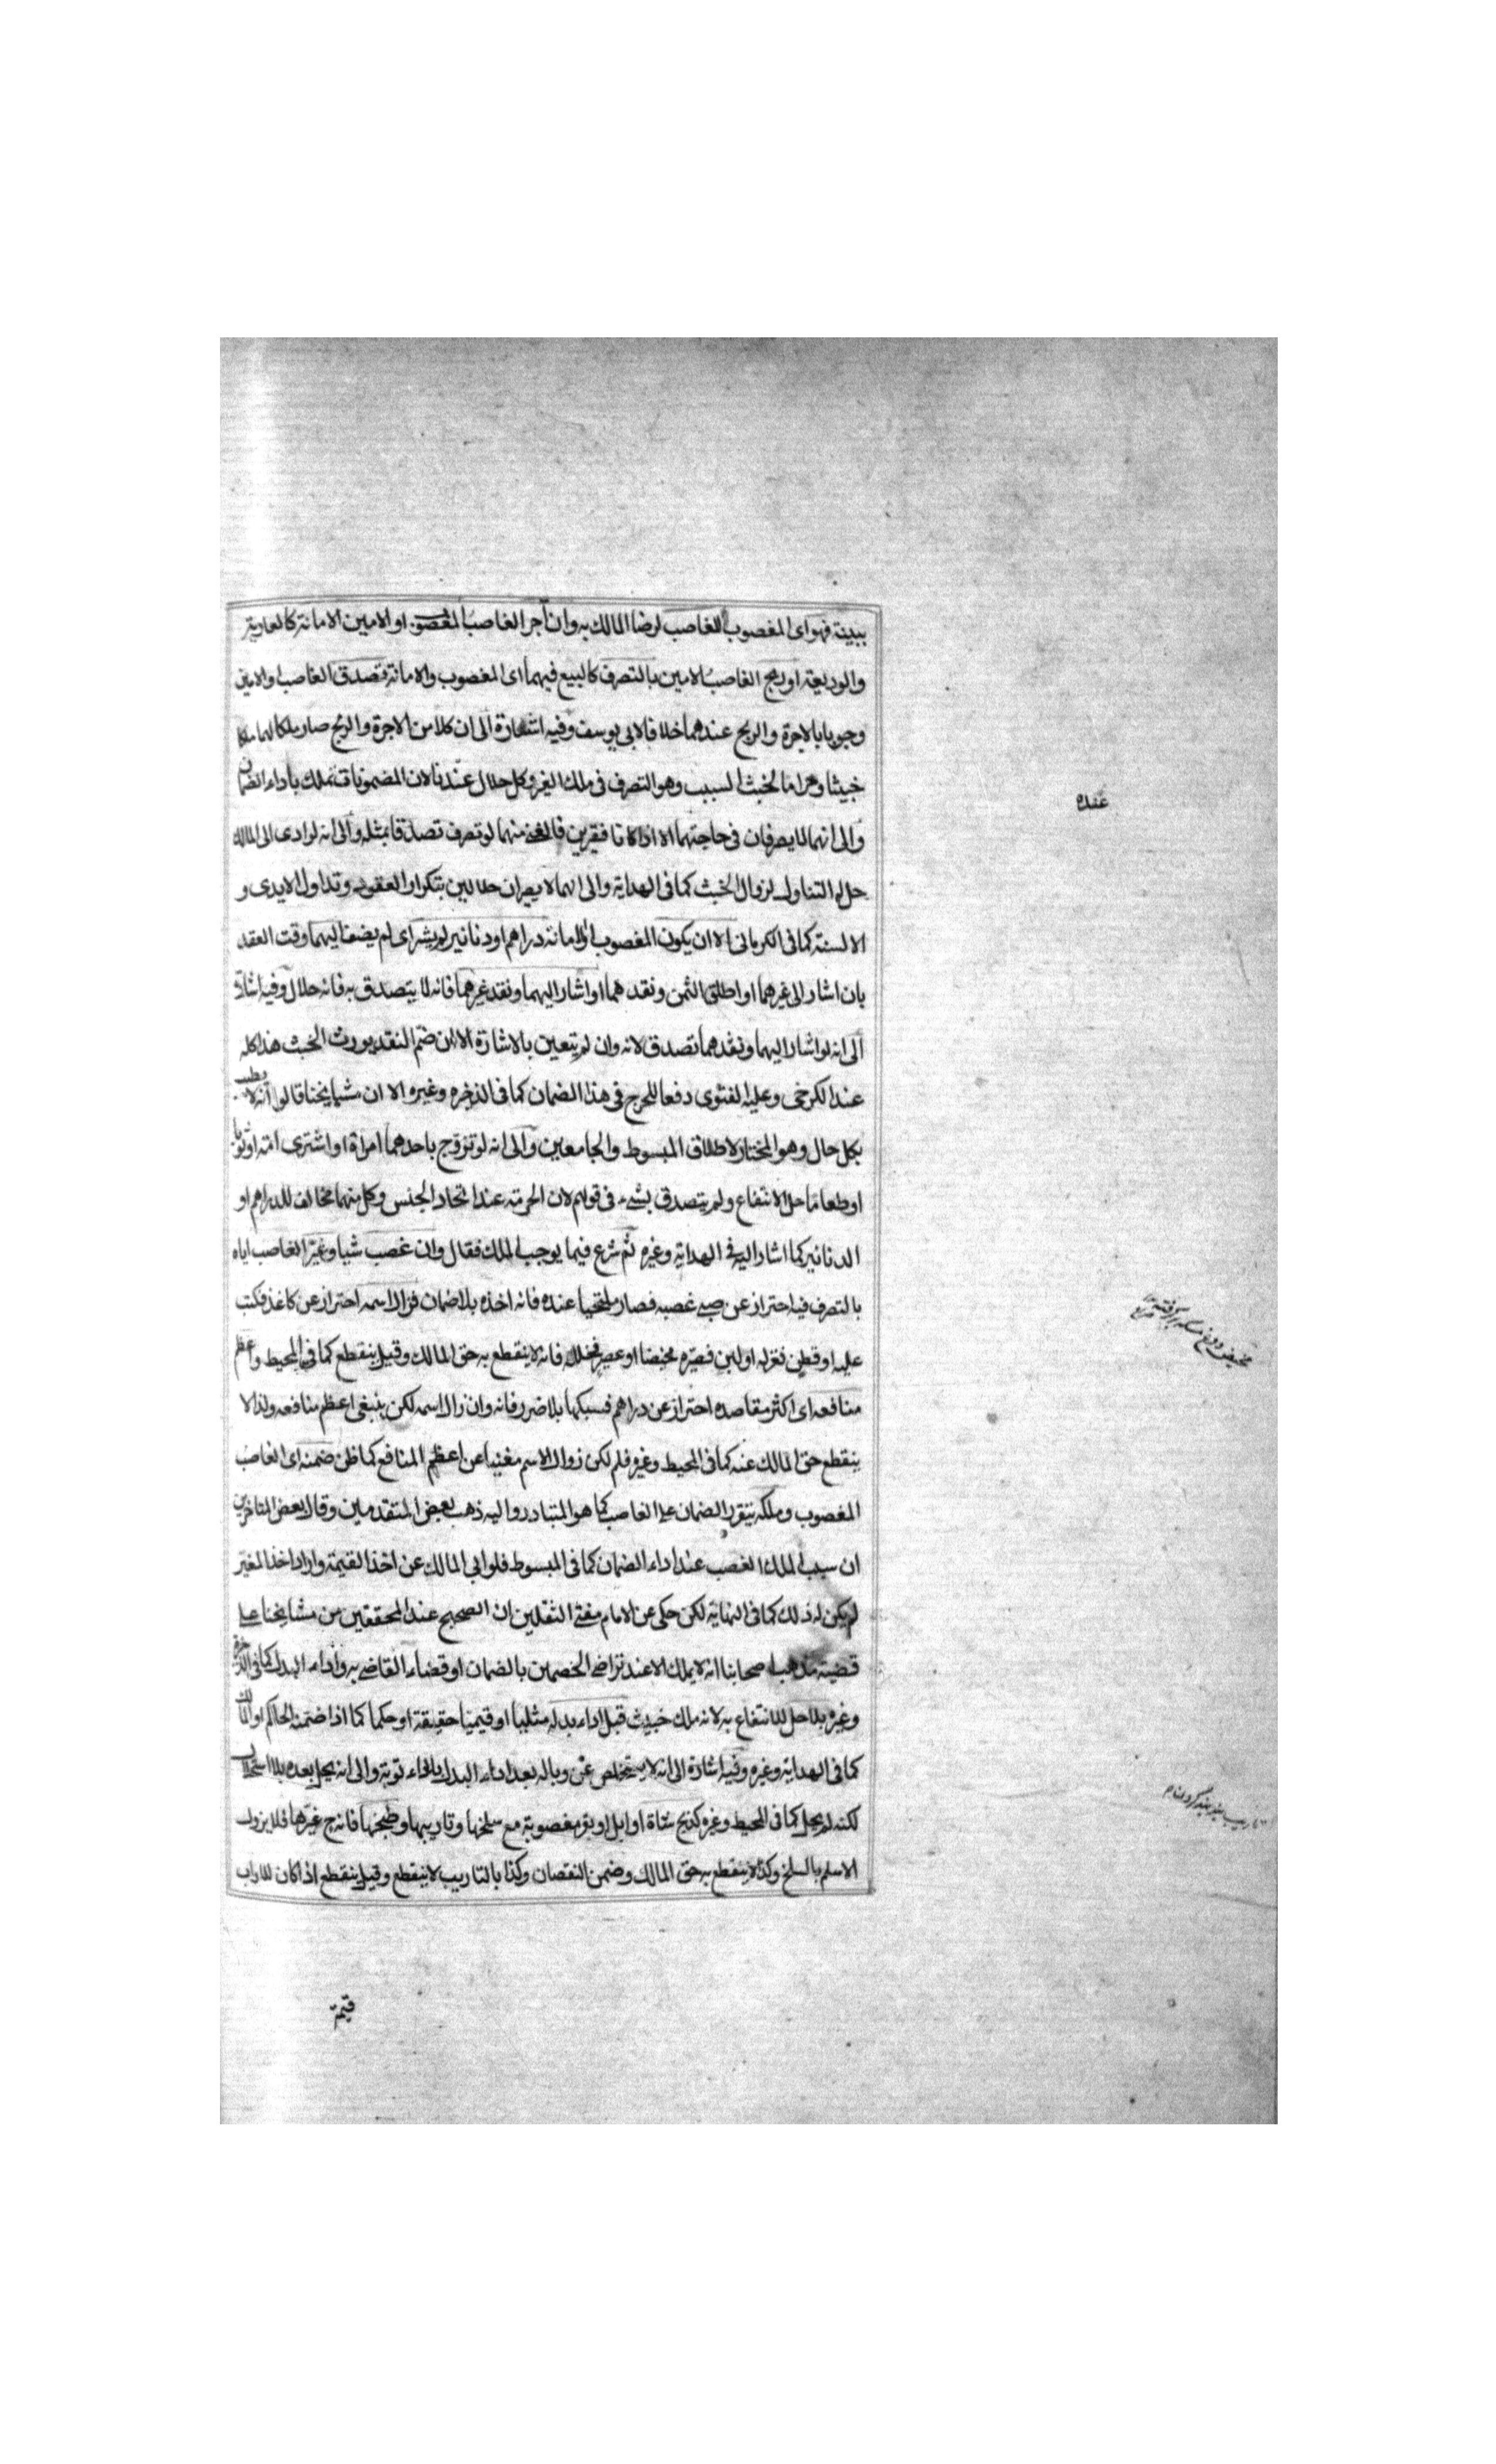 ببينة فهو اى المغصوب للغاصب لرضا المالك به وان آجر الغاصب المغصوب او الامين الامانة كالعارية
والوديعة او ربح الغاصب الامين بالتصرف كالبيع فيهما اى المغصوب والامانة تصدق الغاصب او الامين
وجوبا بالاجرة والربح عندهما خلافا لابى يوسف وفيه اشعارة الى ان كلا من الاجرة والربح صار ملكا لهما ملكا
خبيثا وحراما لخبث السبب وهو التصرف فى ملك الغير وكل حلال عندنا لان المضمونات تملك باداء الضمان
والى انهما لا يصرفان فى حاجتهما الا اذا كانا فقيرين فالغنى منهما لو تصرف تصدقا بمثله والى انه لو ادى الى المالك
حل له التناول لزوال الخبث كما فى الهداية والى انهما لا يصيران حلالين بتكرار العقود وتداول الايدى و
الالسنة كما فى الكرمانى الا ان يكون المغصوب او الامانة دراهم او دنانير لم يشر اى لم يضف اليهما وقت العقد
بان اشار الى غيرهما او اطلق الثمن ونقدهما او اشار اليهما ونقد غيرهما فانه لا يتصدق به فانه حلال وفيه اشارة
الى انه لو اشار اليهما ونقدهما تصدق لانه وان لم يتعين بالاشارة الا ان ضم النقد يورث الخبث هذا كله
عند الكرخى وعليه الفتوى دفعا للحرج فى هذا الضمان كما فى الذخيره وغيره الا ان مشايخنا قالوا انه لا يطيب
بكل حال وهو المختار لاطلاق المبسوط والجامعين والى انه لو تزوج باحدهما امراة او اشترى امة او ثوبا
او طعاما حل الانتفاع ولم يتصدق بشىء فى قولهم لان الحرمة عند اتحاد الجنس وكل منهما مخالف للدراهم او
الدنانير كما اشار اليه فى الهداية وغيره ثم شرع فيما يوجب الملك فقال وان غصب شيا وغير الغاصب اياه
بالتصرف فيه احتراز عن صبى غصبه فصار ملتحيا عنده فانه اخذه بلا ضمان فزال اسمه احتراز عن كاغذ فكتب
عليه او قطن فغزله او لبن فصيره مخيضا او عصير فخلله فانه لا ينقطع به حق المالك وقيل ينقطع كما فى المحيط واعظم
منافعه اى اكثر مقاصده احتراز عن دراهم فسبكها بلا ضرر فانه وان زال اسمه لكن يبقى اعظم منافعه ولذا لا
ينقطع حق المالك عنه كما فى المحيط وغيره فلم لكن زوال الاسم مغنيا عن اعظم المنافع كما ظن ضمنه اى الغاصب
المغصوب وملكه بتقرر الضمان على الغاصب كما هو المتبادر واليه ذهب بعض المتقدمين وقال بعض المتاخرين
ان سبب الملك الغصب عند اداء الضمان كما فى المبسوط فلو ابى المالك عن اخذ القيمة واراد اخذ المغير
لم يكن له ذلك كما فى النهاية لكن حكى عن الامام مفتى الثقلين ان الصحيح عند المحققين من مشايخنا على
قضية مذهب اصحابنا انه لا يملك الا عند تراضى الخصمين بالضمان او قضاء القاضى به واداء البدل كما فى الذخيرة
وغيره بلا حل للانتفاع به لانه ملك خبيث قبل اداء بدله مثليا او قيميا حقيقة او حكما كما اذا ضمنه الحاكم او المالك
كما فى الهداية وغيره وفيه اشارة الى انه لا يتخلص عن وباله بعد اداء البدل بلا توبة والى انه يحل بعده بلا استحلال
لكنه لم يحل كما فى المحيط وغيره كذبح شاة او ابل او بقر مغصوبة مع سلخها وتاريبها وطبخها فانه ح غيرها فلا يزول
الاسم بالسلخ وكذا لا ينقطع به حق المالك وضمن النقصان وكذا بالتاريب لا ينقطع وقيل ينقطع اذا كان للاراب
قيمة
عنده
مخيض دوغ مسكه برگرفته
تاريب بند بند كردن